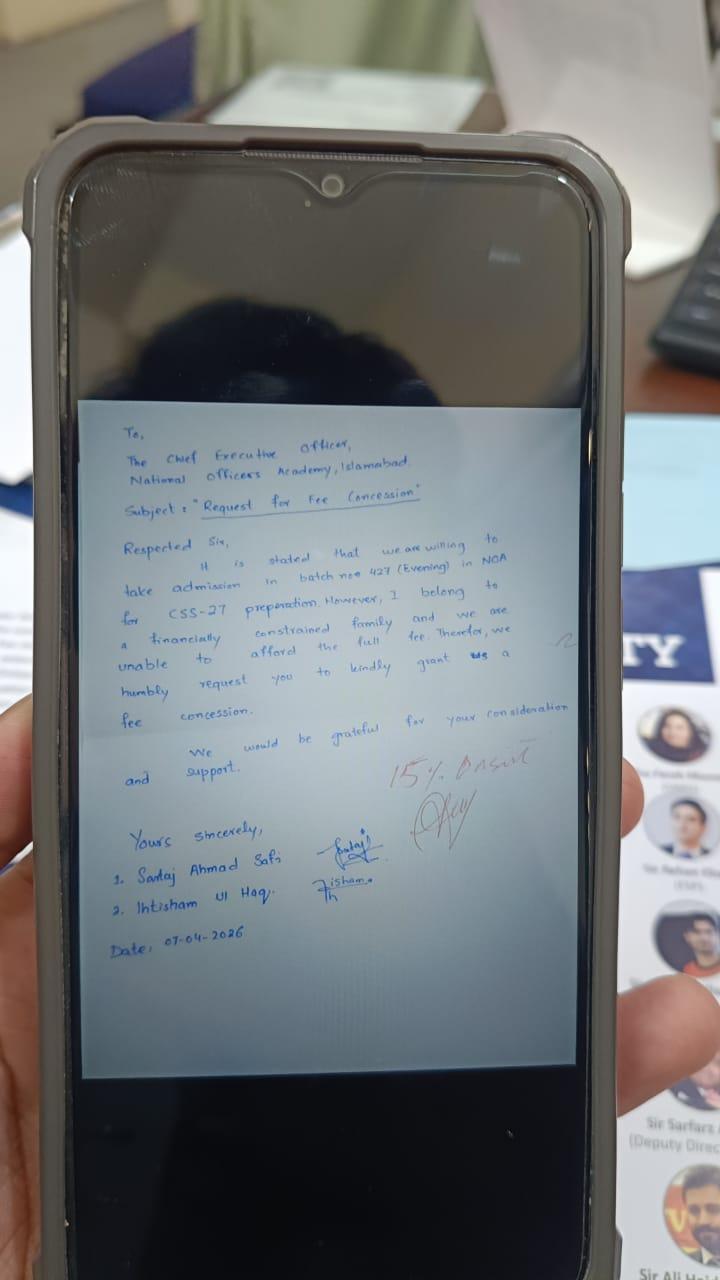 To,
The Chief Executive Officer,
National Officers Academy, Islamabad.
Subject : "Request for Fee Concession"
Respected Sir,
It is stated that we are willing to
take admission in batch noe 427 (Evening) in NOA
for CSS-27 preparation. However, I belong to
a financially constrained family and we are
unable to afford the full fee. Therefor, we
humbly request you to kindly grant us a
fee concession.
We would be grateful for your consideration
and support.
15%
Yours sincerely,
1. Sartaj Ahmad Safi
2. Ihtisham Ul Haq.
Date: 07-04-2026
TY
Sir Sarfarz
(Deputy Direc
Sir Ali